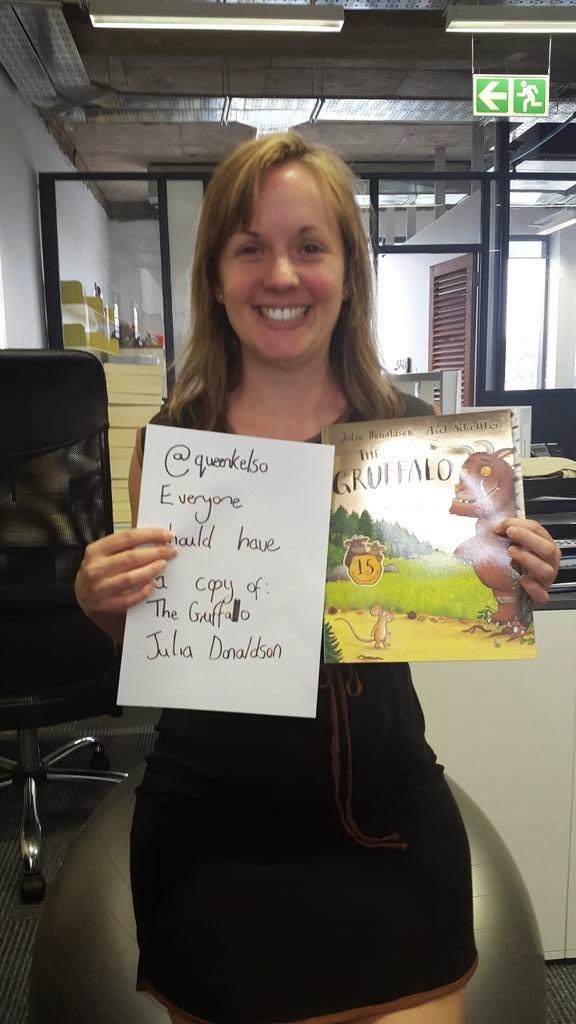 @queenkelso
Everyone
hould have
a copy of:
The Gruffalo
Julia Donaldson
Julia Donaldson Axel Scheffler
THE
GRUFFALO
15